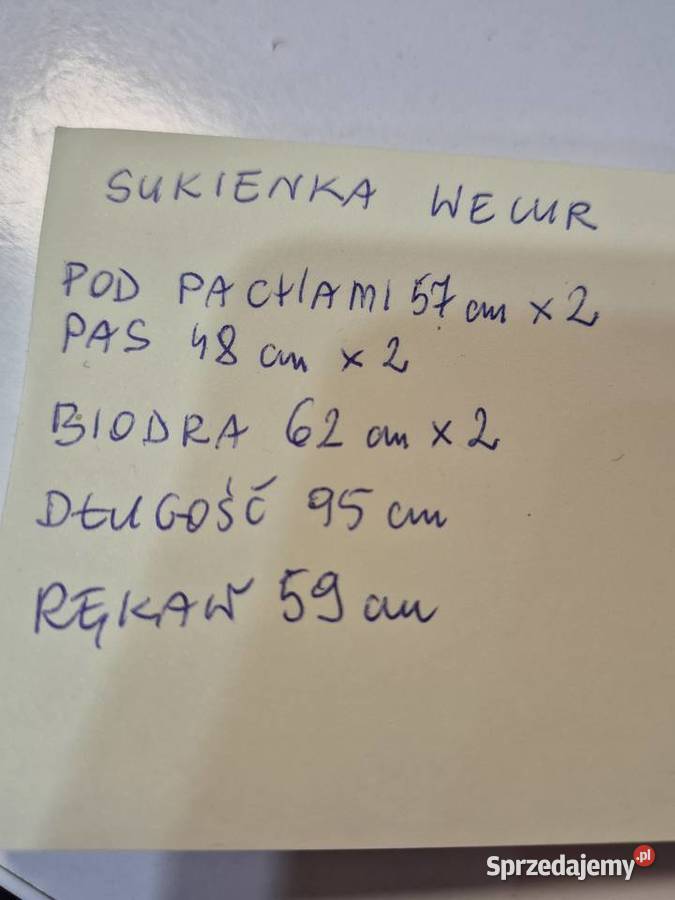 SUKIENKA WELUR
POD PACHAMI 57 cm x 2
PAS 48 cm x 2
BIODRA 62 cm x 2
DŁUGOŚĆ 95 cm
RĘKAW 59 cm
Sprzedajemy.pl